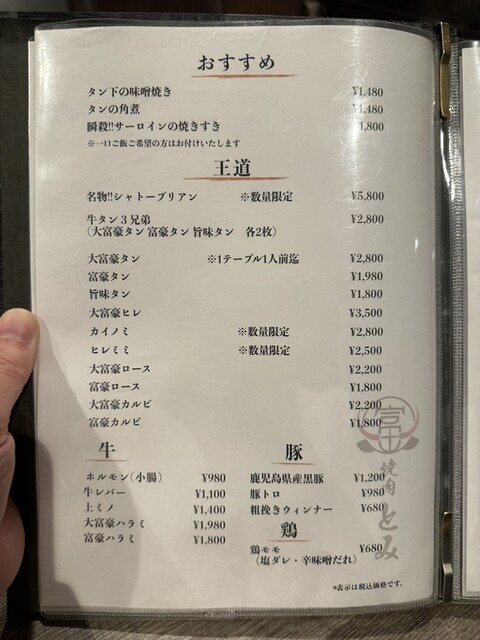 おすすめ
タン下の味噌焼き ¥1,480
タンの角煮 ¥1,480
瞬殺!!サーロインの焼きすき 1,800
※一口ご飯ご希望の方はお付けいたします
王道
名物!!シャトーブリアン ※数量限定 ¥5,800
牛タン3兄弟 ¥2,800
(大富豪タン 富豪タン 旨味タン 各2枚)
大富豪タン ※1テーブル1人前迄 ¥2,800
富豪タン ¥1,980
旨味タン ¥1,800
大富豪ヒレ ¥3,500
カイノミ ※数量限定 ¥2,800
ヒレミミ ※数量限定 ¥2,500
大富豪ロース ¥2,200
富豪ロース ¥1,800
大富豪カルビ ¥2,200
富豪カルビ ¥1,800
牛
ホルモン(小腸) ¥980
牛レバー ¥1,100
上ミノ ¥1,400
大富豪ハラミ ¥1,980
富豪ハラミ ¥1,800
豚
鹿児島県産黒豚 ¥1,200
豚トロ ¥980
粗挽きウィンナー ¥680
鶏
鶏モモ ¥680
(塩ダレ・辛味噌だれ)
焼肉とみ
*表示は税込価格です。